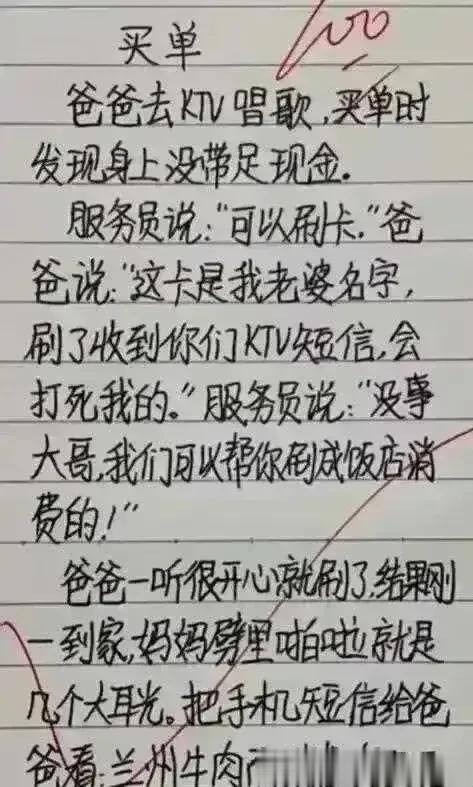 100
买单
爸爸去KTV唱歌,买单时
发现身上没带足现金.
服务员说:“可以刷卡.”爸
爸说:“这卡是我老婆名字,
刷了收到你们KTV短信,会
打死我的.”服务员说:“没事
大哥,我们可以帮你刷成饭店消
费的!”
爸爸一听很开心就刷了,结果刚
一到家,妈妈劈里啪啦就是
几个大耳光。把手机短信给爸
爸看:兰州牛肉